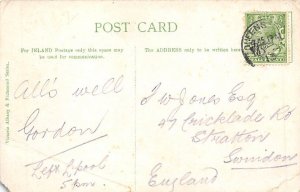 POST CARD
For INLAND Postage only this space may
be used for communication.
The ADDRESS only to be written here
All's well
Gordon
Left L'pool
5 pm
J W Jones Esq
49 Cricklade Rd
Stratton
Swindon
England